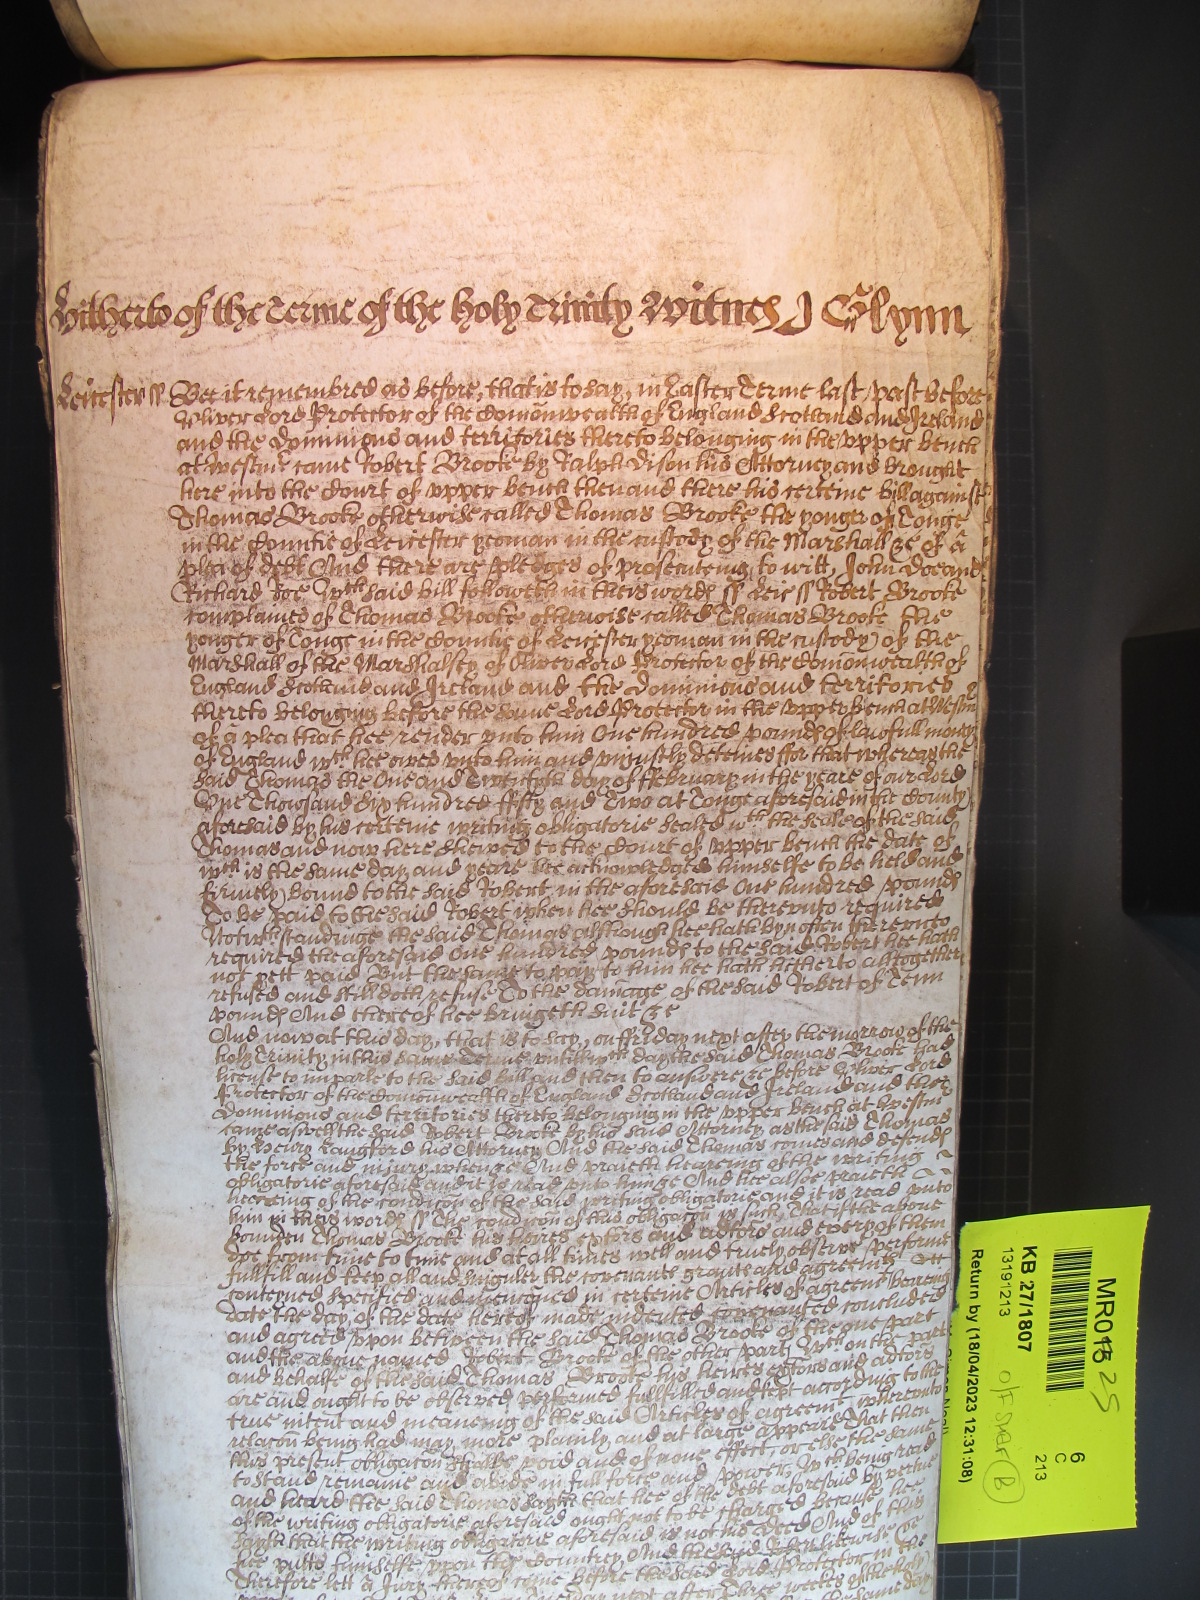 Hitherto of the Terme of the holy Trinity Witnes J Glynn
Leicester ss Bee it remembred as before, that is to say, in Easter Terme last past before
Oliver Lord Protector of the Comonwealth of England Scotland and Ireland
and the Dominions and territories thereto belonging in the upper bench
at Westmr came Robert Brooke by Ralph Dison his Attorney and brought
here into the Court of upper bench then and there his certeine bill against
Thomas Brooke otherwise called Thomas Brooke the yonger of Tonge
in the Countie of Leicester yeoman in the custody of the Marshall &c of a
plea of debt And there are pledges of prosecuteing, to witt, John Doe and
Richard Roe Wch said bill followeth in theis words ss Leic ss Robert Brooke
complaines of Thomas Brooke otherwise called Thomas Brooke the
yonger of Tonge in the Countie of Leicester yeoman in the custody of the
Marshall of the Marshalsey of Oliver Lord Protector of the Comonwealth of
England Scotland and Ireland and the Dominions and territories
thereto belonging before the same Lord Protector in the upper bench at Westmr
of a plea that hee render unto him One hundred pounds of lawfull money
of England wch hee owes unto him and uniustly deteines ffor that whereas the
said Thomas the One and Twentieth day of ffebruary in the yeare of our Lord
One Thousand Six hundred ffifty and Two at Tonge aforesaid in the County
aforesaid by his certeine writing obligatorie sealed wth the seale of the said
Thomas and now here shewed to the Court of upper bench the date of
wch is the same day and yeare hee acknowledged himselfe to be held and
firmely bound to the said Robert in the aforesaid One hundred pounds
To be paid to the said Robert when hee should be thereunto required
Notwthstandinge the said Thomas although hee hath byn often thereunto
required the aforesaid One hundred pounds to the said Robert hee hath
not yett paid But the same to pay to him hee hath hitherto alltogether
refused and still doth refuse To the damage of the said Robert of Tenn
pounds And thereof hee bringeth suit &c
And now at this day, that is to say, on ffriday next after the morrow of the
holy Trinity in this same Terme untill wch day the said Thomas Brooke had
license to imparle to the said bill and then to answere &c before Oliver Lord
Protector of the Comonwealth of England Scotland and Ireland and the
Dominions and territories thereto belonging in the upper bench at Westmr
came aswell the said Robert Brooke by his said Attorney as the said Thomas
by Henry Langford his Attorney And the said Thomas comes and defends
the force and iniury when &c And praieth heareing of the writing
obligatorie aforesaid and it is read unto him &c And hee alsoe praieth
heareing of the condicon of the said writing obligatorie and it is read unto
him in theis words ss The condicon of this obligacon is such, That if the above
bounden Thomas Brooke his heires exTors and adtors and every of them
doe from time to time and at all times well and truely observe performe
fullfill and keep all and singuler the covenants graunts and agreemts
conteyned specified and menconed in certeine Articles of agreemt beareing
date the day of the date hereof made indented covenanted concluded
and agreed upon betweene the said Thomas Brooke of the one part
and the above named Robert Brooke of the other party Wch on the part
and behalfe of the said Thomas Brooke his heires extors and adtors
are and ought to be observed performed fullfilled and kept according to the
true intent and meaneing of the said Articles of agreemt whereunto
relacon being had may more plainly and at large appeare That then
this present obligacon shalbe void and of none effect, or else the same
to stand remaine and abide in full force and power, Wch being read
and heard the said Thomas sayth that hee of the debt aforesaid by vertue
of the writing obligatorie aforesaid ought not to be charged because hee
sayth that the writing obligatorie aforesaid is not his deed And of this
hee putts himselfe upon the Countrey And the said Robert likewise &c
Therefore lett a Jury thereof come before the said Lord Protector in the
next after three weekes of the holy
the same day
MR018 25
6
C
213
KB 27/1807
13191213
Return by (18/04/2023 12:31:08)
B